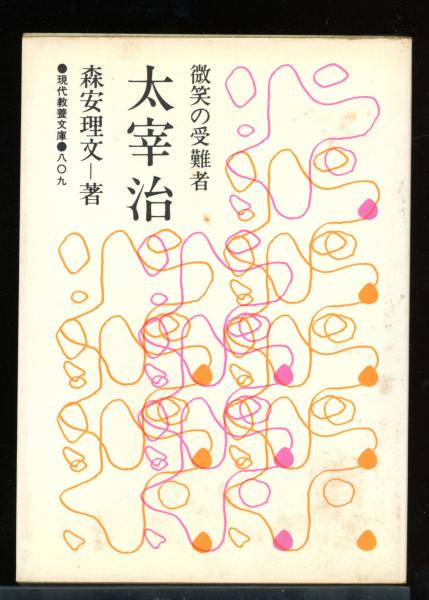 微笑の受難者
太宰治
森安理文—著
●現代教養文庫●八〇九